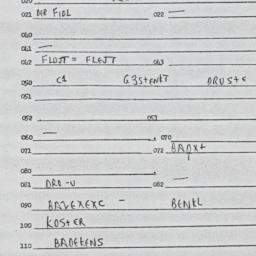 020
021 DER FIDL 022 —
060
061 —
062 FLOJT = FLEJT 063
050 C1 G3STENKT DRUSTE
051
052 053
060 — 070
071 072 BADXT
080
081 DRD-U 082 —
090 BAVEXEXC - BENKL
100 KOSTER
110 BADEKENS